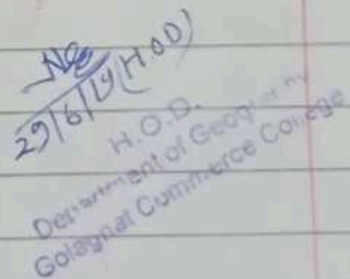 29/6/19 (H.O.D)
H.O.D.
Department of Geography
Golaghat Commerce College